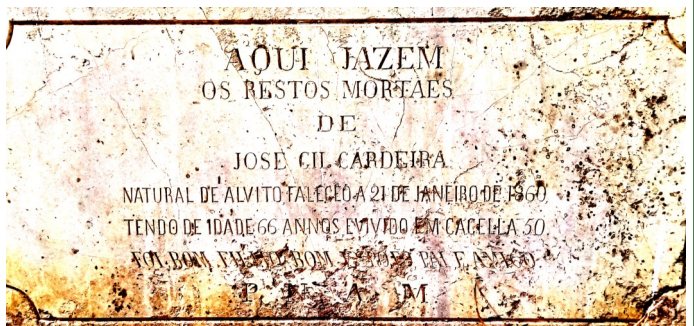 AQUI JAZEM
OS RESTOS MORTAES
DE
JOSE GIL CARDEIRA
NATURAL DE ALVITO FALECEO A 21 DE JANEIRO DE 1860
TENDO DE IDADE 66 ANNOS E VIVIDO EM CACELLA 50
FOI BOM FILHO BOM ESPOSO PAI E AMIGO
P. N. A M